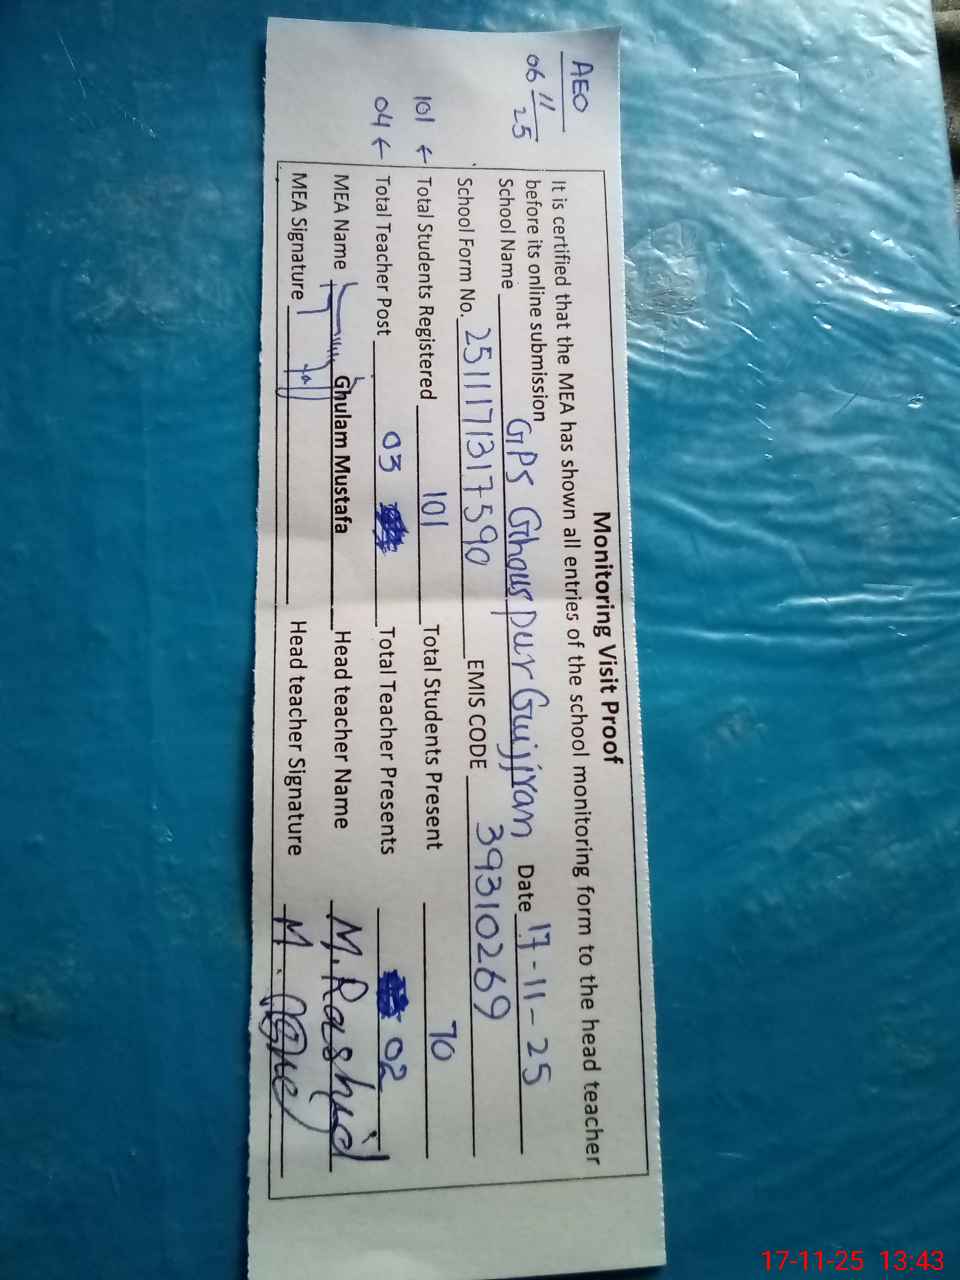 AEO
06/11/25
101 ←
04 ←
Monitoring Visit Proof
It is certified that the MEA has shown all entries of the school monitoring form to the head teacher
before its online submission
School Name GPS Ghouspur Gujjran Date 17-11-25
School Form No. 2511171317590 EMIS CODE 39310269
Total Students Registered 101 Total Students Present 70
Total Teacher Post 03 Total Teacher Presents 02
MEA Name Ghulam Mustafa Head teacher Name M.Rashid
MEA Signature Head teacher Signature M.
17-11-25 13:43